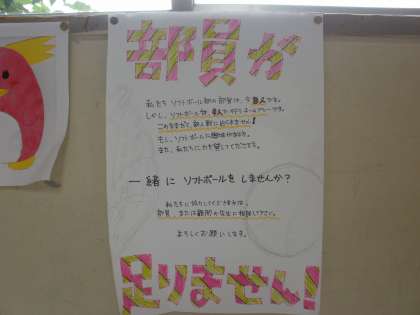 部員が
私たち ソフトボール部の部員は、今8人です。
しかし、ソフトボールは、9人で
このままだと、新人戦に出られません!
もし、ソフトボールに興味があれば、
また、私たちに力を貸してください。
一緒に ソフトボールを しませんか?
私たちに協力してくださる方は、
部員、または顧問の先生に相談して下さい。
よろしくお願いします。
足りません!